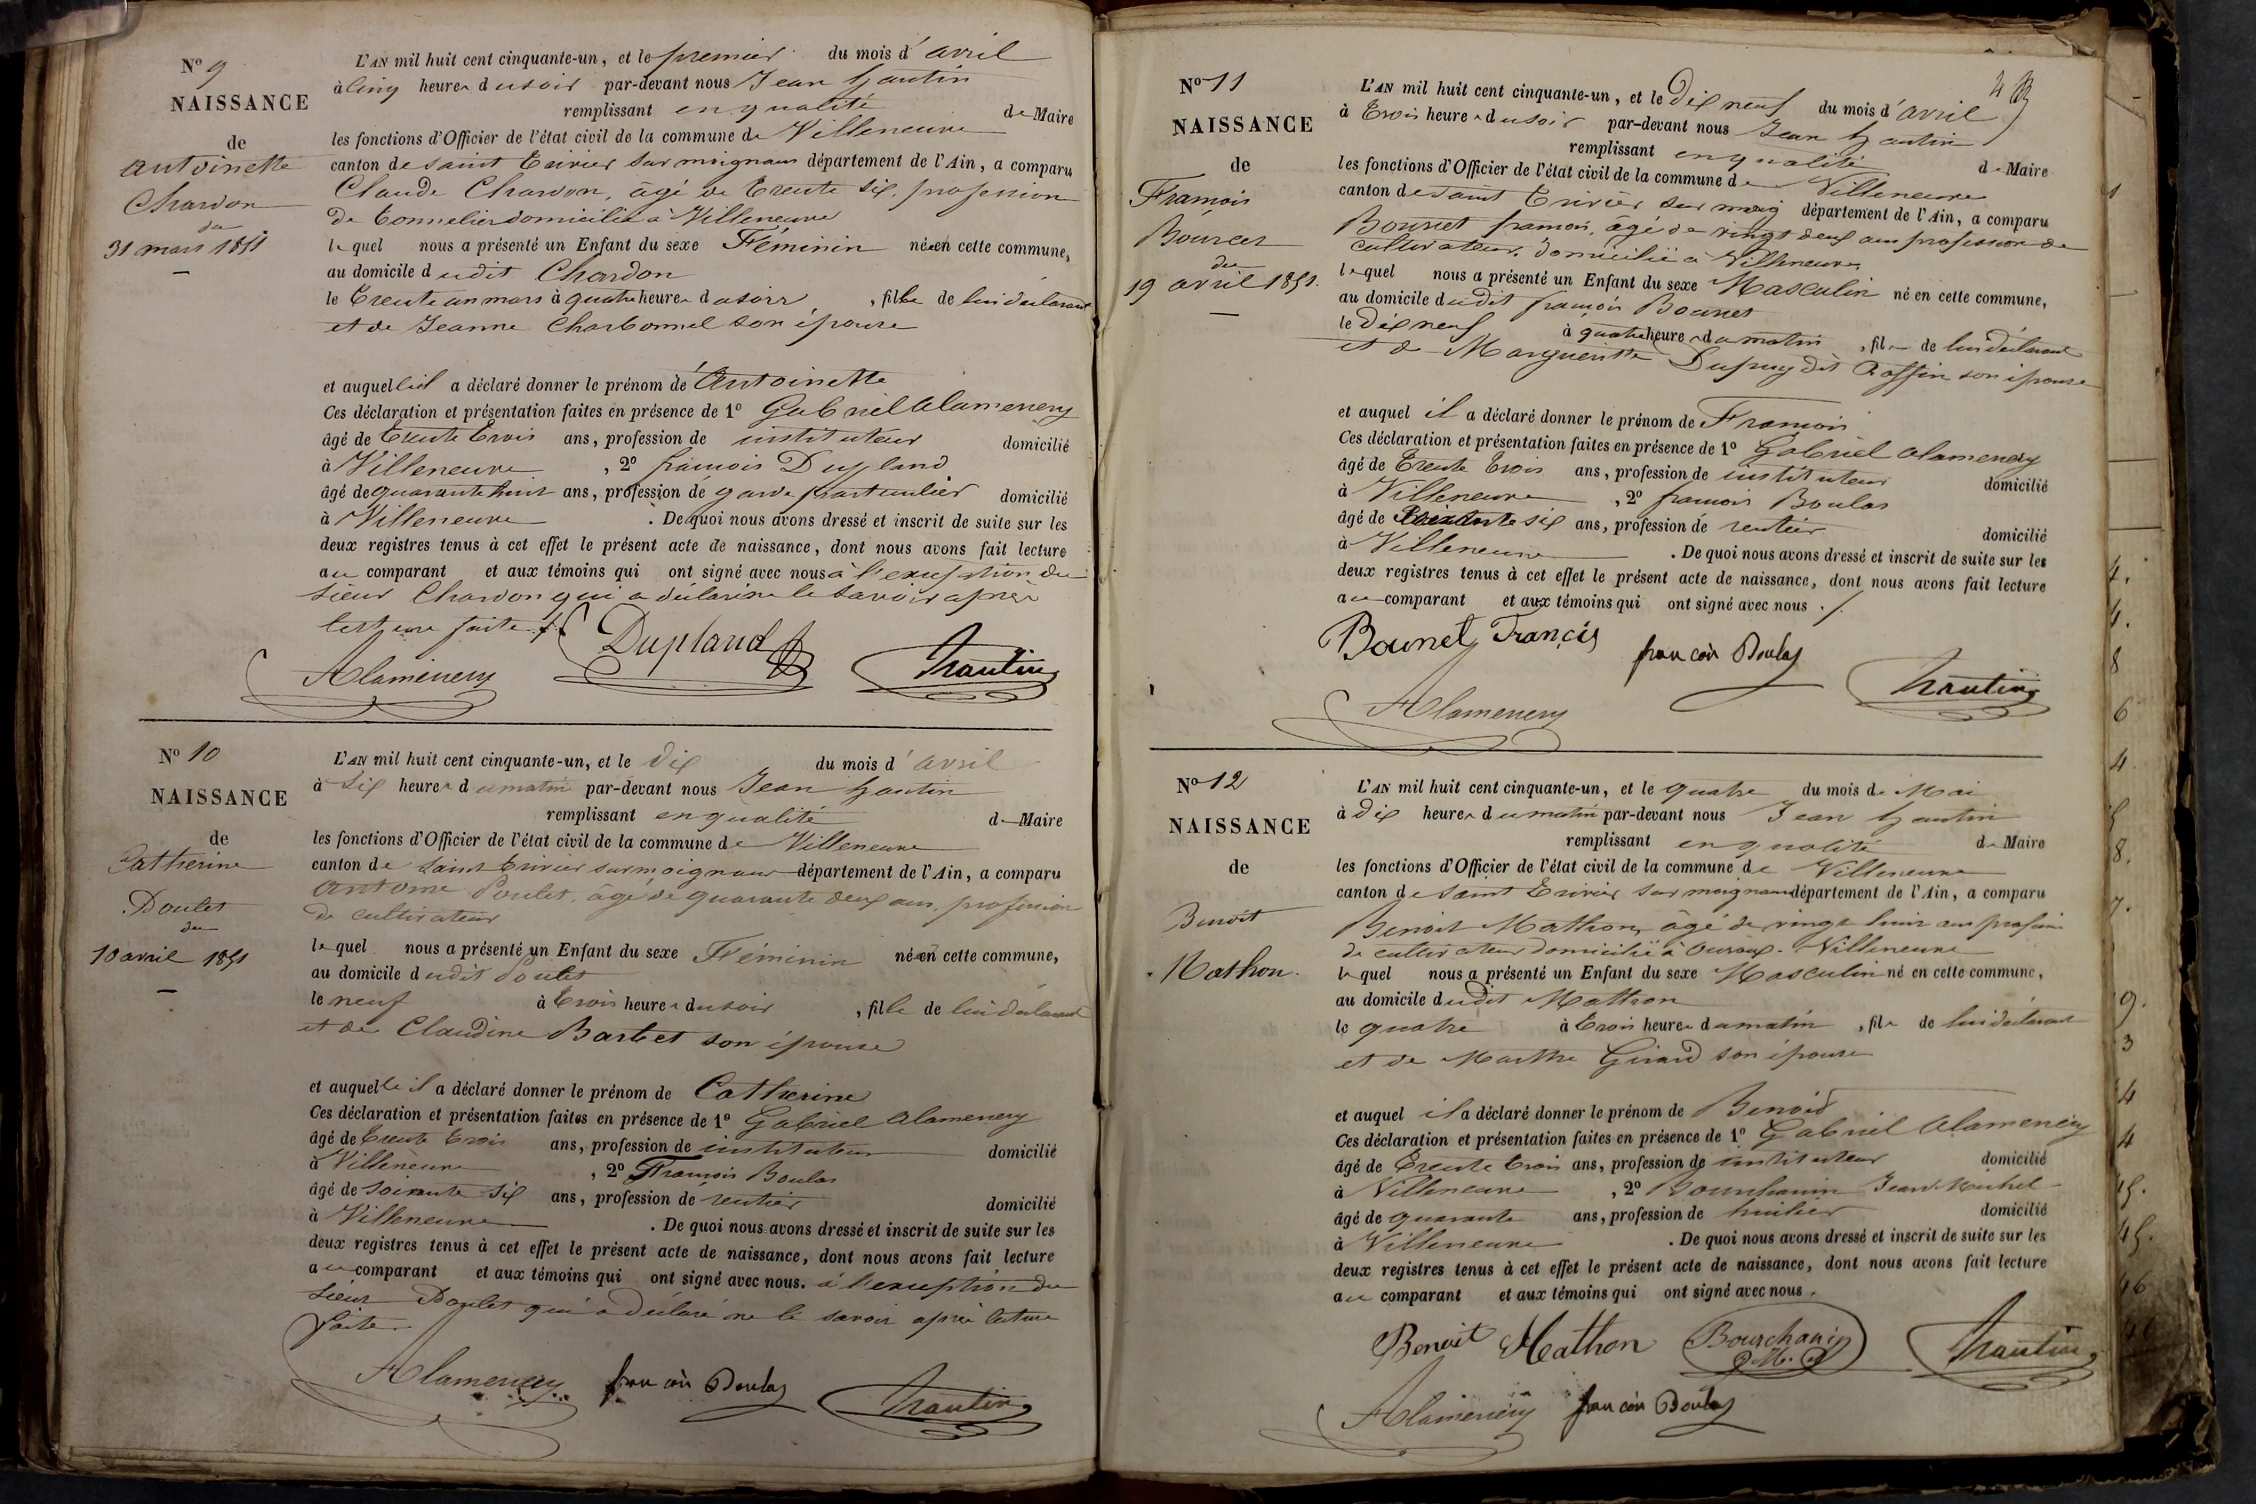 Nº 9
NAISSANCE
de
Antoinette
Chardon
du
31 mars 1851
L'AN mil huit cent cinquante-un, et le premier du mois d'avril
à cinq heures du soir par-devant nous Jean
remplissant en qualité de Maire
les fonctions d'Officier de l'état civil de la commune de Villeneuve
canton de Saint Trivier sur moignans département de l'Ain, a comparu
Claude Chardon, âgé de trente six, profession
de tonnelier domicilié à Villeneuve
lequel nous a présenté un Enfant du sexe Féminin né en cette commune,
au domicile dudit Chardon
le trente un mars à quatre heures du soir, fille de lui déclarant
et de Jeanne Charbonnel son épouse
et auquel il a déclaré donner le prénom de Antoinette
Ces déclaration et présentation faites en présence de 1º Gabriel Alamenery
âgé de trente trois ans, profession de instituteur domicilié
à Villeneuve, 2º françois Dupland
âgé de quarante huit ans, profession de garde particulier domicilié
à Villeneuve. De quoi nous avons dressé et inscrit de suite sur les
deux registres tenus à cet effet le présent acte de naissance, dont nous avons fait lecture
au comparant et aux témoins qui ont signé avec nous à l'exception du
sieur Chardon qui a déclaré ne le savoir après
lecture faite
Dupland
Alamenery
Nº 10
NAISSANCE
de
Catherine
Poulet
du
10 avril 1851
L'AN mil huit cent cinquante-un, et le dix du mois d'avril
à six heures du matin par-devant nous Jean
remplissant en qualité de Maire
les fonctions d'Officier de l'état civil de la commune de Villeneuve
canton de Saint Trivier sur moignans département de l'Ain, a comparu
Antoine Poulet, âgé de quarante deux ans, profession
de cultivateur
lequel nous a présenté un Enfant du sexe Féminin né en cette commune,
au domicile dudit Poulet
le neuf à trois heures du soir, fille de lui déclarant
et de Claudine Barbet son épouse
et auquel il a déclaré donner le prénom de Catherine
Ces déclaration et présentation faites en présence de 1º Gabriel Alamenery
âgé de trente trois ans, profession de instituteur domicilié
à Villeneuve, 2º François Boulas
âgé de soixante six ans, profession de rentier domicilié
à Villeneuve. De quoi nous avons dressé et inscrit de suite sur les
deux registres tenus à cet effet le présent acte de naissance, dont nous avons fait lecture
au comparant et aux témoins qui ont signé avec nous. à l'exception du
sieur Poulet qui a déclaré ne le savoir après lecture
faite.
Alamenery françois Boulas
Nº 11
NAISSANCE
de
François
du
19 avril 1851.
L'AN mil huit cent cinquante-un, et le dix neuf du mois d'avril
à trois heures du soir par-devant nous Jean
remplissant en qualité de Maire
les fonctions d'Officier de l'état civil de la commune de Villeneuve
canton de Saint Trivier sur moig département de l'Ain, a comparu
françois, âgé de vingt deux ans profession de
cultivateur, domicilié à Villeneuve
lequel nous a présenté un Enfant du sexe Masculin né en cette commune,
au domicile dudit françois
le dix neuf à quatre heures du matin, fils de lui déclarant
et de Marguerite Dupuy dit son épouse
et auquel il a déclaré donner le prénom de François
Ces déclaration et présentation faites en présence de 1º Gabriel Alamenery
âgé de trente trois ans, profession de instituteur domicilié
à Villeneuve, 2º françois Boulas
âgé de six ans, profession de rentier domicilié
à Villeneuve. De quoi nous avons dressé et inscrit de suite sur les
deux registres tenus à cet effet le présent acte de naissance, dont nous avons fait lecture
au comparant et aux témoins qui ont signé avec nous.
Francis
françois Boulas
Alamenery
Nº 12
NAISSANCE
de
Benoit
Mathon.
L'AN mil huit cent cinquante-un, et le quatre du mois de Mai
à dix heures du matin par-devant nous Jean
remplissant en qualité de Maire
les fonctions d'Officier de l'état civil de la commune de Villeneuve
canton de Saint Trivier sur moignans département de l'Ain, a comparu
Benoit Mathon, âgé de vingt huit ans
de cultivateur domicilié à Villeneuve
lequel nous a présenté un Enfant du sexe Masculin né en cette commune,
au domicile dudit Mathon
le quatre à trois heures du matin, fils de lui déclarant
et de Marthe Girard son épouse
et auquel il a déclaré donner le prénom de Benoit
Ces déclaration et présentation faites en présence de 1º Gabriel Alamenery
âgé de trente trois ans, profession de instituteur domicilié
à Villeneuve, 2º Bourchanin Jean Michel
âgé de quarante ans, profession de huilier domicilié
à Villeneuve. De quoi nous avons dressé et inscrit de suite sur les
deux registres tenus à cet effet le présent acte de naissance, dont nous avons fait lecture
au comparant et aux témoins qui ont signé avec nous.
Benoit Mathon Bourchanin
Alamenery françois Boulas